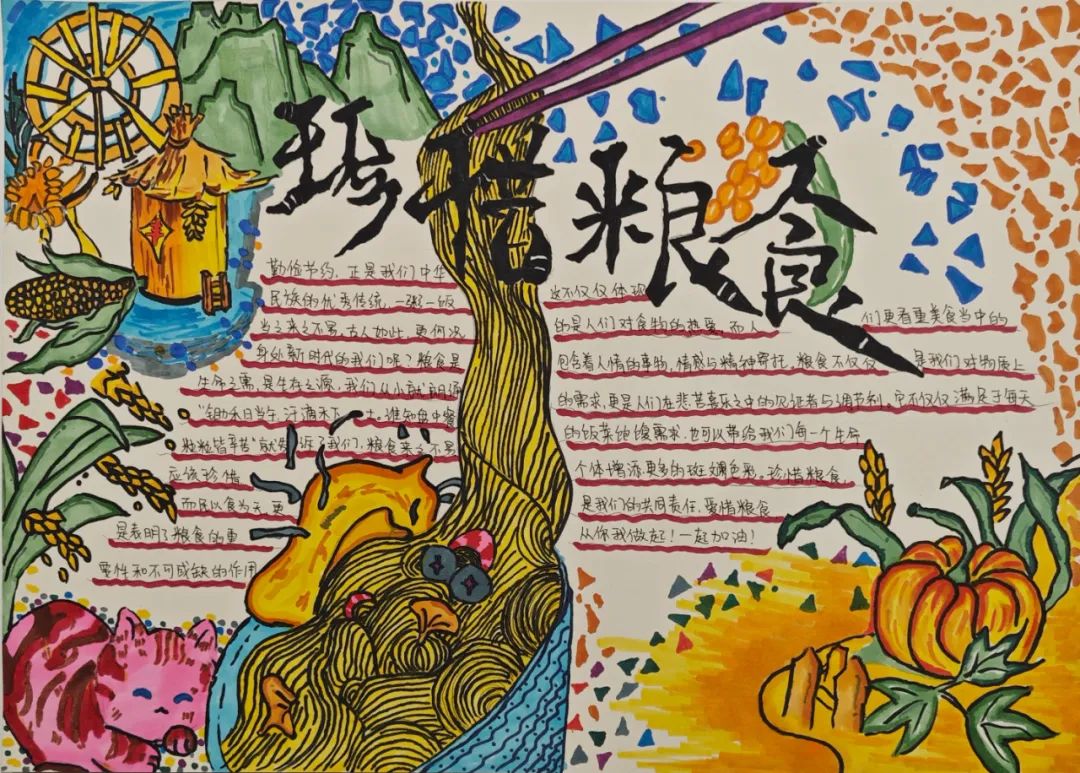 珍惜粮食
勤俭节约，正是我们中华
民族的优秀传统，一粥一饭
当之来之不易，古人如此，更何况
身处新时代的我们呢？粮食是
生命之需，是生存之源，我们从小就朗诵
"锄禾日当午，汗滴禾下土。谁知盘中餐
粒粒皆辛苦"就告诉了我们，粮食来之不易
应该珍惜
而民以食为天更
是表明了粮食的重
要性和不可或缺的作用
这不仅仅体现
的是人们对食物的热爱，而人
们更看重美食当中的
包含着人情的事物，情感与精神寄托，粮食不仅仅
是我们对物质上
的需求，更是人们在悲苦喜乐之中的见证者与调节剂。它不仅仅满足于每天
的饭菜饱馊需求，也可以带给我们每一个生命
个体增添更多的斑斓色彩。珍惜粮食，
是我们的共同责任，爱惜粮食
从你我做起！一起加油！